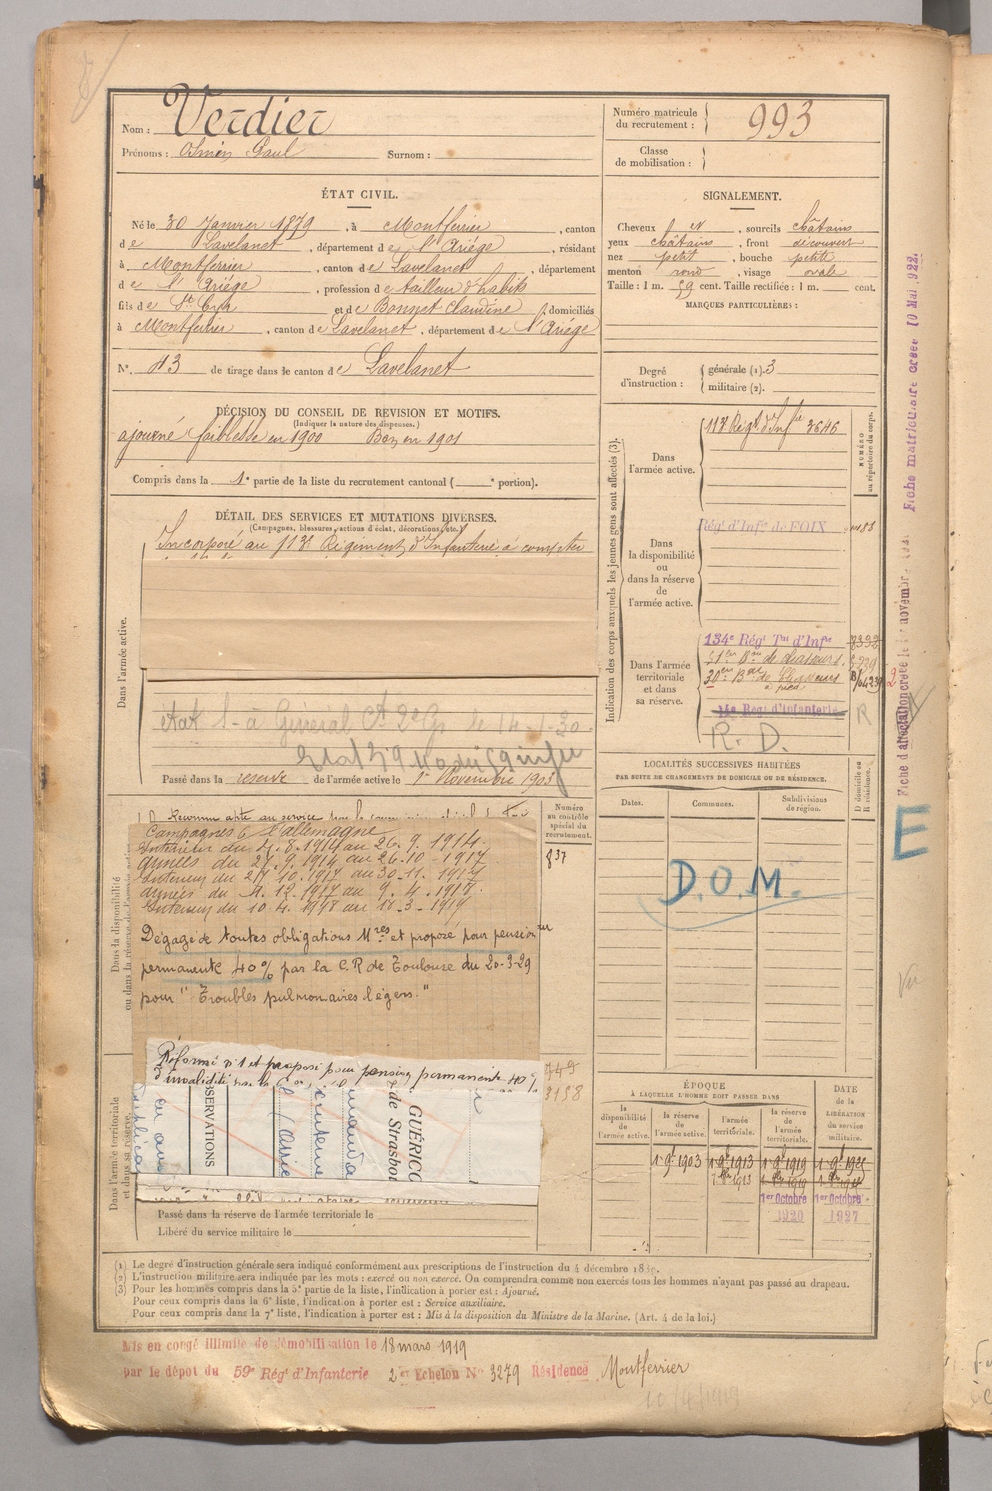 Nom : Verdier
Prénoms : Paul Surnom :
Numéro matricule du recrutement : 993
Classe de mobilisation :
ÉTAT CIVIL.
Né le 30 Janvier 1879, à Montferrier, canton
de Lavelanet, département de l'Ariège, résidant
à Montferrier, canton de Lavelanet, département
de l'Ariège, profession de tailleur d'habits
fils de St Cyr et de Bonnet Claudine, domiciliés
à Montferrier, canton de Lavelanet, département de l'Ariège
N° 43 de tirage dans le canton de Lavelanet
SIGNALEMENT.
Cheveux et, sourcils châtains
yeux châtains, front découvert
nez petit, bouche petite
menton rond, visage ovale
Taille : 1 m. 59 cent. Taille rectifiée : 1 m. cent.
MARQUES PARTICULIÈRES :
Degré d'instruction : générale (1). 3
militaire (2).
DÉCISION DU CONSEIL DE REVISION ET MOTIFS.
(Indiquer la nature des dispenses.)
ajourné faiblesse en 1900 Bon en 1901
Compris dans la 1e partie de la liste du recrutement cantonal ( e portion).
DÉTAIL DES SERVICES ET MUTATIONS DIVERSES.
(Campagnes, blessures, actions d'éclat, décorations, etc.)
Dans l'armée active.
Incorporé au 113e Régiment d'Infanterie à compter
Passé dans la réserve de l'armée active le 1er Novembre 1903
Indication des corps auxquels les jeunes gens sont affectés (3).
NUMÉRO au répertoire du corps.
Dans l'armée active.
Régt d'Infie 3646
Dans la disponibilité ou dans la réserve de l'armée active.
Régt d'Infie de FOIX
Dans l'armée territoriale et dans sa réserve.
134e Régt Tal d'Infie
51en Bon de chasseurs
30en Bon de Chasseurs à pied
14e Régt d'Infanterie
R. D.
R
LOCALITÉS SUCCESSIVES HABITÉES
PAR SUITE DE CHANGEMENTS DE DOMICILE OU DE RÉSIDENCE.
D domicile ou R résidence.
Dates. Communes. Subdivisions de région.
D.O.M.
E
Numéro au contrôle spécial du recrutement.
837
749
3158
Dans la disponibilité
Campagnes c. l'allemagne
Intérieur du 4.8.1914 au 26.9.1914
armées du 27.9.1914 au 26.10.1917
Intérieur du 27.10.1917 au 30.11.1917
armées du 4.12.1917 au 9.4.1918
Intérieur du 10.4.1918 au 18.3.1919
Dégagé de toutes obligations Mres et proposé pour pension
permanente 40% par la C.R de Toulouse du 20-3-29
pour "Troubles pulmonaires légers."
Réformé n°1 et proposé pour pension permanente 40%
d'invalidité
OBSERVATIONS
GUÉRICO
de Strasbo
Dans l'armée territoriale et dans sa réserve.
Passé dans la réserve de l'armée territoriale le
Libéré du service militaire le
ÉPOQUE
À LAQUELLE L'HOMME DOIT PASSER DANS
DATE de la LIBÉRATION du service militaire.
la disponibilité de l'armée active. la réserve de l'armée active. l'armée territoriale. la réserve de l'armée territoriale.
1er Octobre 1920
1er Octobre 1927
(1) Le degré d'instruction générale sera indiqué conformément aux prescriptions de l'instruction du 4 décembre
(2) L'instruction militaire sera indiquée par les mots : exercé ou non exercé. On comprendra comme non exercés tous les hommes n'ayant pas passé au drapeau.
(3) Pour les hommes compris dans la 5e partie de la liste, l'indication à porter est : Ajourné.
Pour ceux compris dans la 6e liste, l'indication à porter est : Service auxiliaire.
Pour ceux compris dans la 7e liste, l'indication à porter est : Mis à la disposition du Ministre de la Marine. (Art. 4 de la loi.)
Mis en congé illimité de démobilisation le 18 mars 1919
par le dépôt du 59e Régt d'Infanterie 2er Echelon N° 3279 Résidence Montferrier
Fiche matriculaire créée 10 Mai 1922.